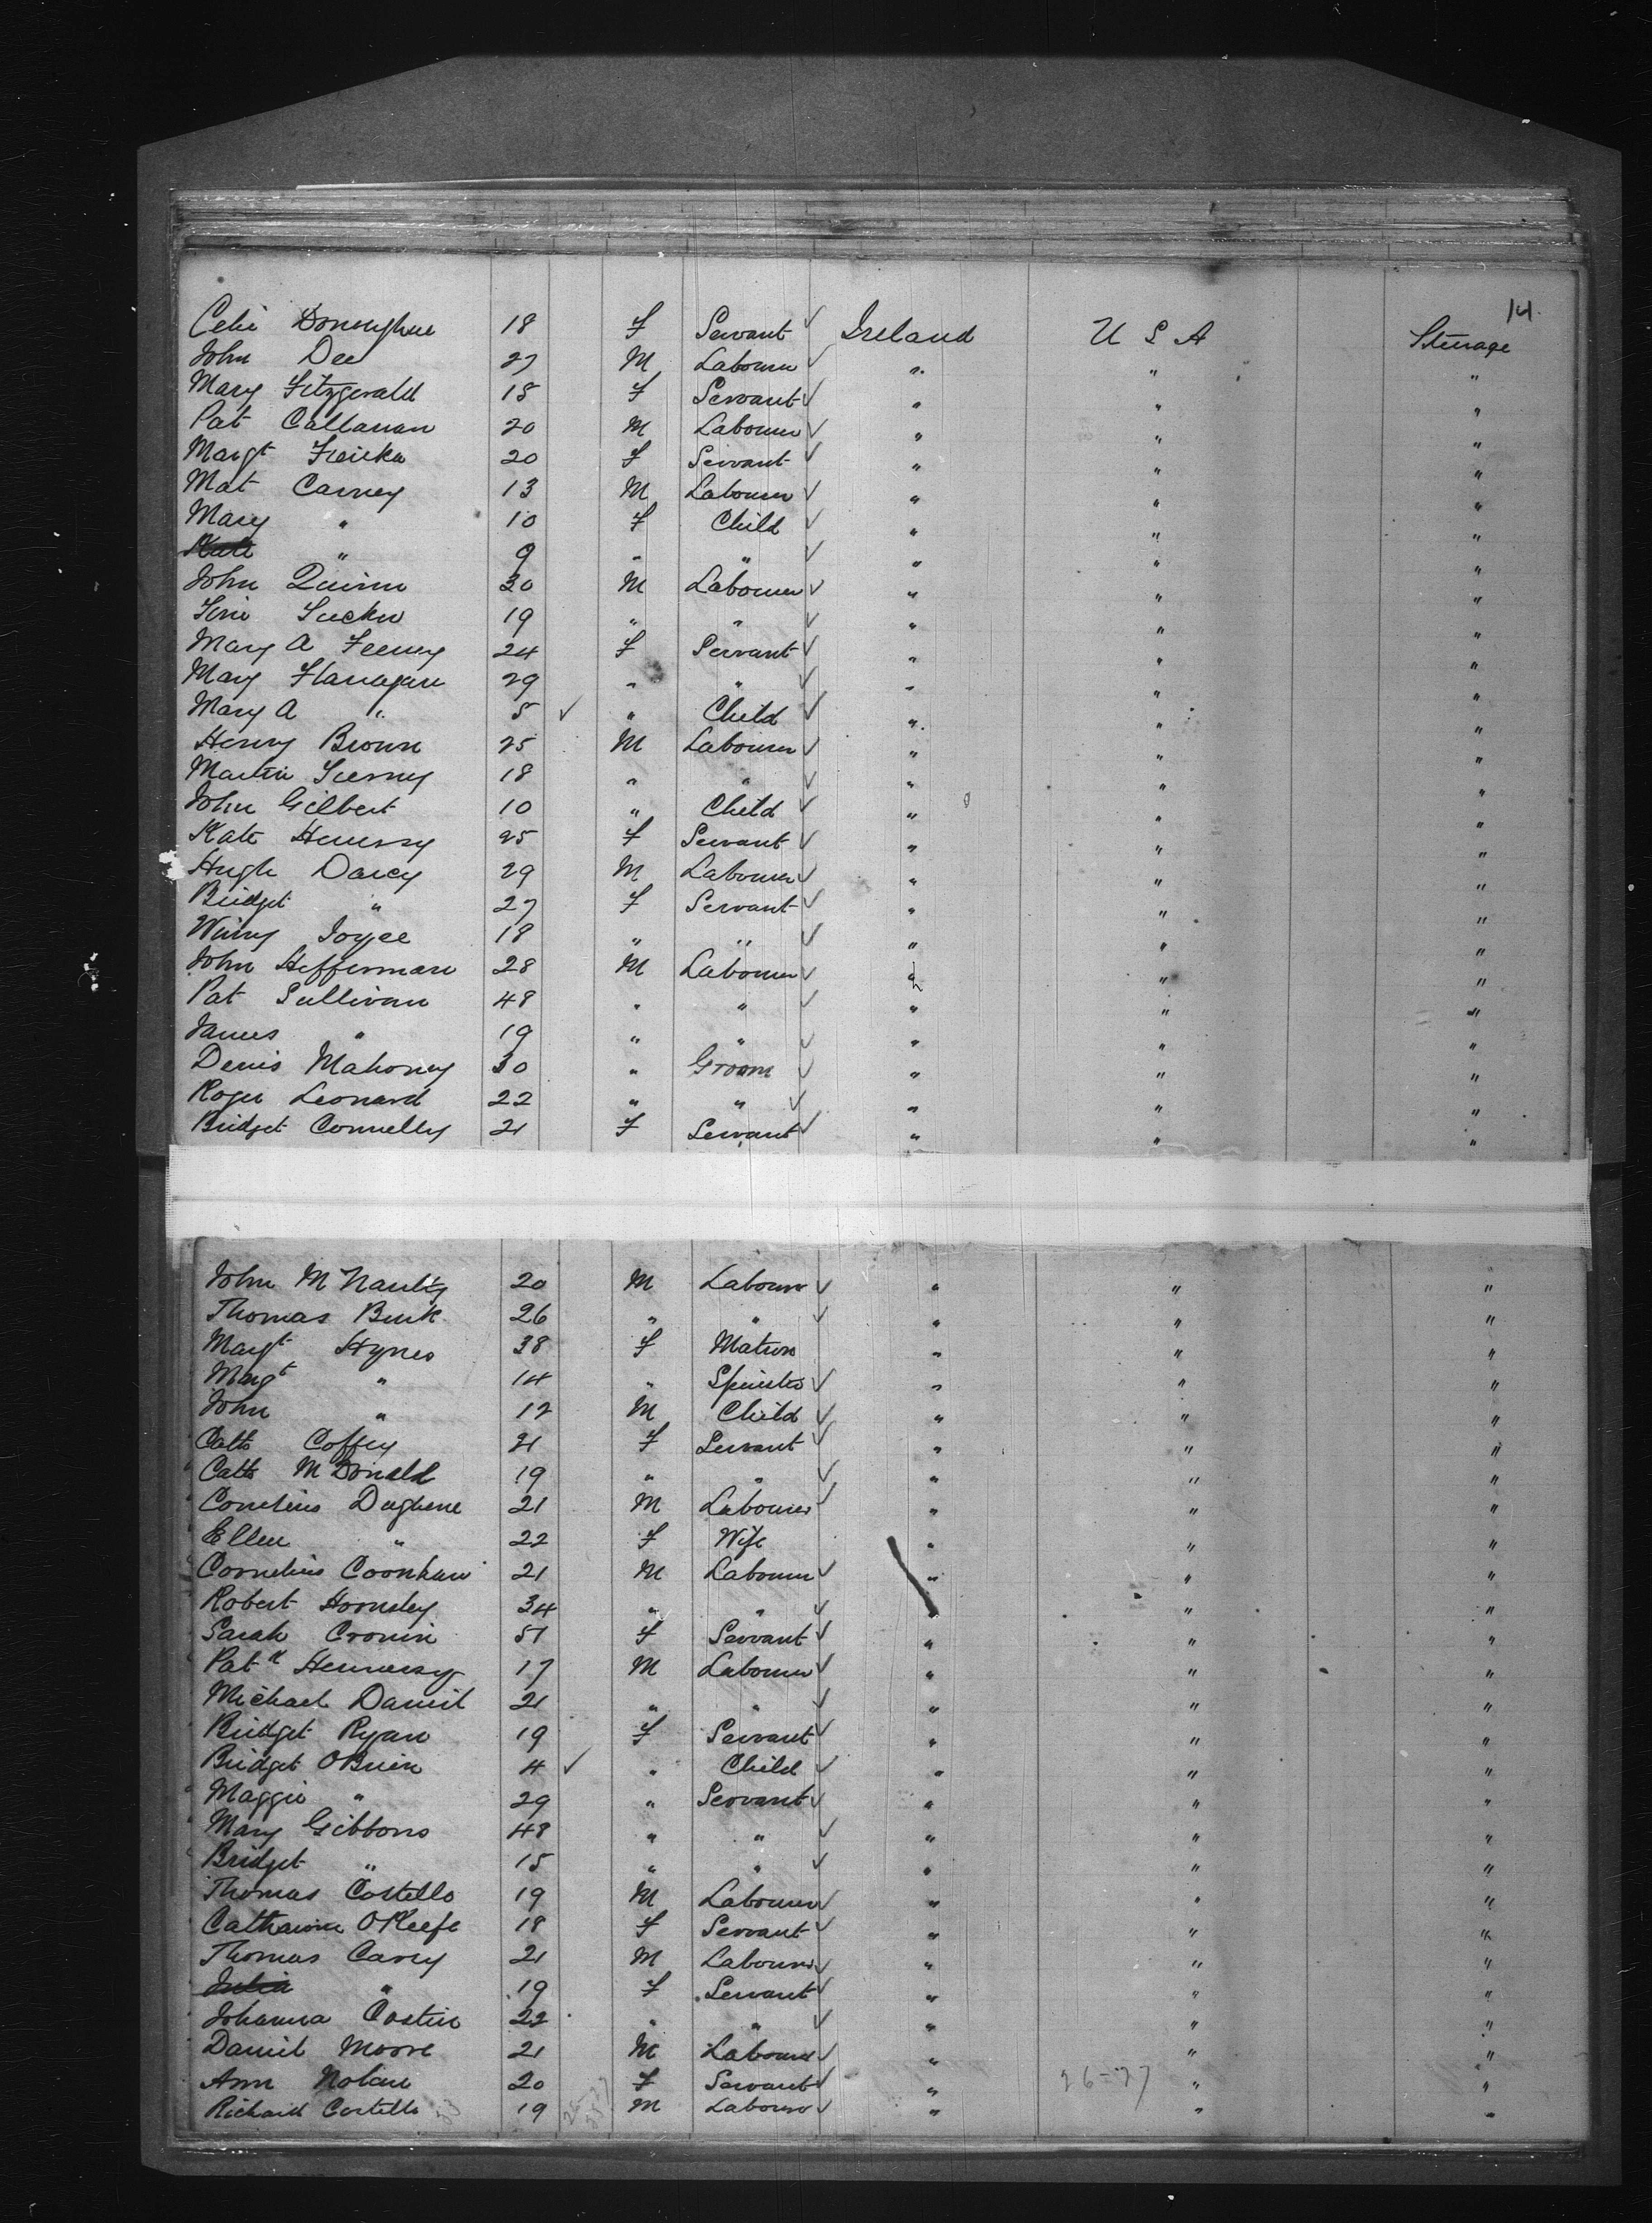 14.
Celi Donoughue 18 F Servant ✓ Ireland U S A Steerage
John Dee 27 M Labourer ✓ " " "
Mary Fitzgerald 18 F Servant ✓ " " "
Pat Callanan 20 M Labourer ✓ " " "
Margt 20 F Servant ✓ " " "
Mat Carney 13 M Labourer ✓ " " "
Mary " 10 F Child ✓ " " "
Kate " 9 " " ✓ " " "
John Quinn 30 M Labourer ✓ " " "
19 " " ✓ " " "
Mary A Feeney 24 F Servant ✓ " " "
Mary Flanagan 29 " " ✓ " " "
Mary A " 5 ✓ " Child ✓ " " "
Henry Brown 25 M Labourer ✓ " " "
Martin 18 " " ✓ " " "
John Gilbert 10 " Child ✓ " " "
Kate Henessy 25 F Servant ✓ " " "
Hugh Darcy 29 M Labourer ✓ " " "
Bridget " 27 F Servant " " "
Winny Joyce 18 " " ✓ " " "
John Heffernan 28 M Labourer ✓ " " "
Pat Sullivan 48 " " ✓ " " "
James " 19 " " ✓ " " "
Denis Mahoney 30 " Groom ✓ " " "
Roger Leonard 22 " " ✓ " " "
Bridget Connelly 21 F Servant ✓ " " "
John McNaulty 20 M Labourer ✓ " " "
Thomas Burk 26 " " ✓ " " "
Margt Hynes 38 F Matron " " "
Margt " 14 " Spinster ✓ " " "
John " 12 M Child ✓ " " "
Cath Coffey 21 F Servant ✓ " " "
Cath McDonald 19 " " ✓ " " "
Cornelius Dughene 21 M Labourer ✓ " " "
Ellen " 22 F Wife " " "
Cornelius 21 M Labourer ✓ " " "
Robert Hornsley 34 " " ✓ " " "
Sarah Cronin 51 F Servant ✓ " " "
Patk Hennessy 17 M Labourer ✓ " " "
Michael Daniel 21 " " ✓ " " "
Bridget Ryan 19 F Servant ✓ " " "
Bridget OBrien 4 ✓ " Child ✓ " " "
Maggie " 29 " Servant ✓ " " "
Mary Gibbons 48 " " ✓ " " "
Bridget " 15 " " ✓ " " "
Thomas Costello 19 M Labourer ✓ " " "
Catharine OKeefe 18 F Servant ✓ " " "
Thomas Carey 21 M Labourer ✓ " " "
Julia " 19 F Servant ✓ " " "
Johanna Costin 22 " " ✓ " " "
Daniel Moore 21 M Labourer ✓ " " "
Ann Nolan 20 F Servant ✓ " 26-27 " "
Richard Costello 19 M Labourer ✓ " " "